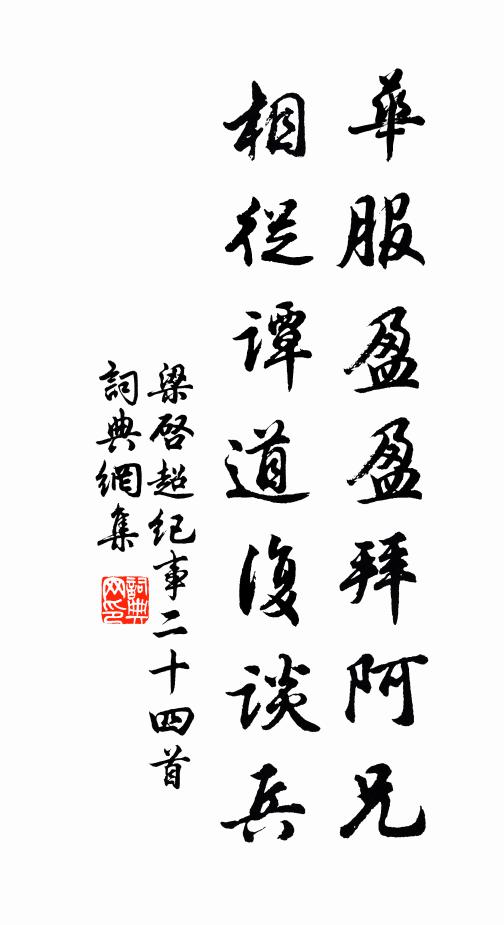 華服盈盈拜阿兄
相從譚道復談兵
梁啓超紀事二十四首
詞典網集
詞典网印